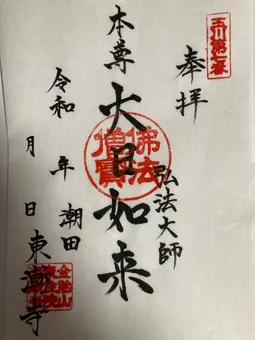 玉川第七番
奉拝
弘法大師
本尊
大日如来
佛法僧寶
令和　年
月　日
潮田
東漸寺